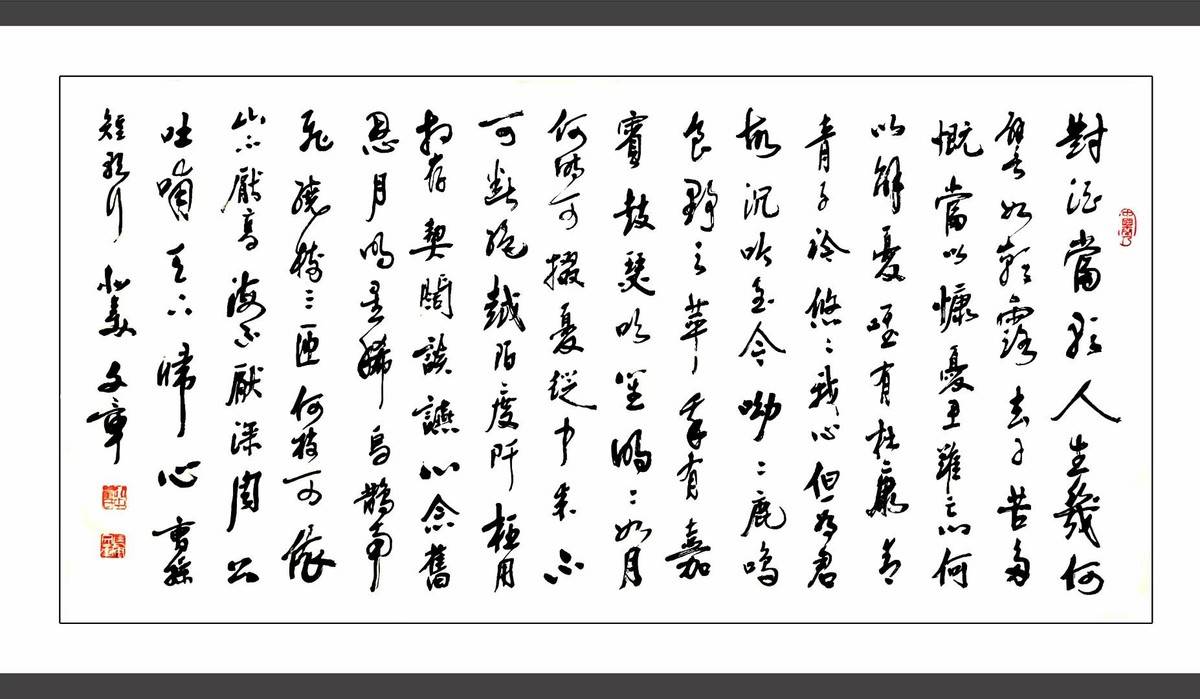 對酒當歌人生幾何
譬如朝露去日苦多
慨當以慷憂思難忘何
以解憂唯有杜康青
青子衿悠〻我心但為君
故沉吟至今呦〻鹿鳴
食野之苹我有嘉
賓鼓瑟吹笙明〻如月
何時可掇憂從中來不
可斷絕越陌度阡枉用
相存契闊談讌心念舊
恩月明星稀烏鵲南
飛繞樹三匝何枝可依
山不厭高海不厭深周公
吐哺天下歸心曹操
短歌行 文章